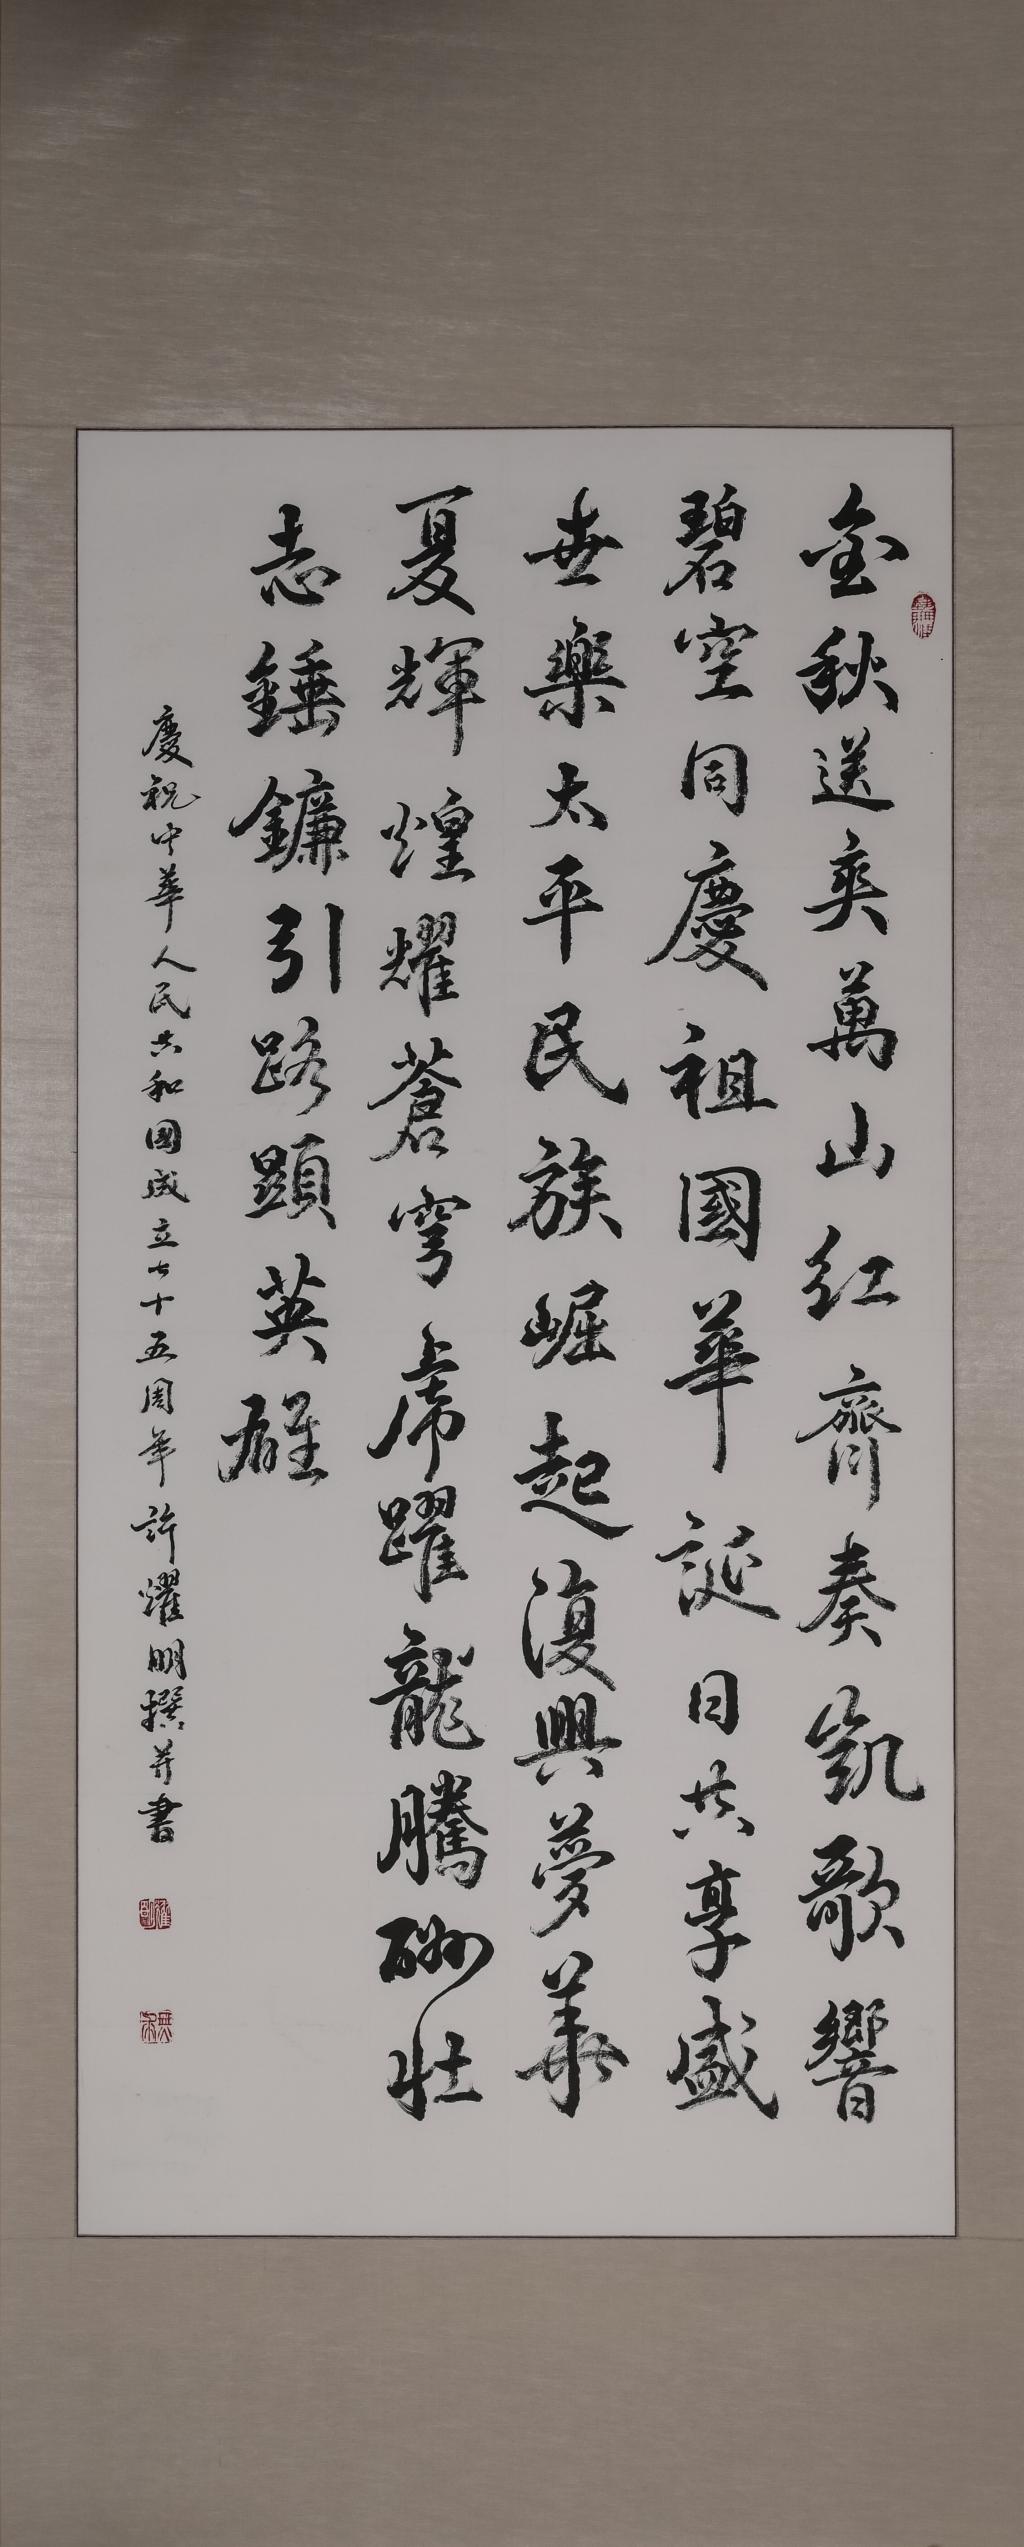 金秋送爽萬山紅齊奏凱歌響
碧空同慶祖國華誕日共享盛
世樂太平民族崛起復興夢華
夏輝煌耀蒼穹虎躍龍騰酬壯
志錘鐮引路顯英雄
慶祝中華人民共和國成立七十五周年許耀明撰并書